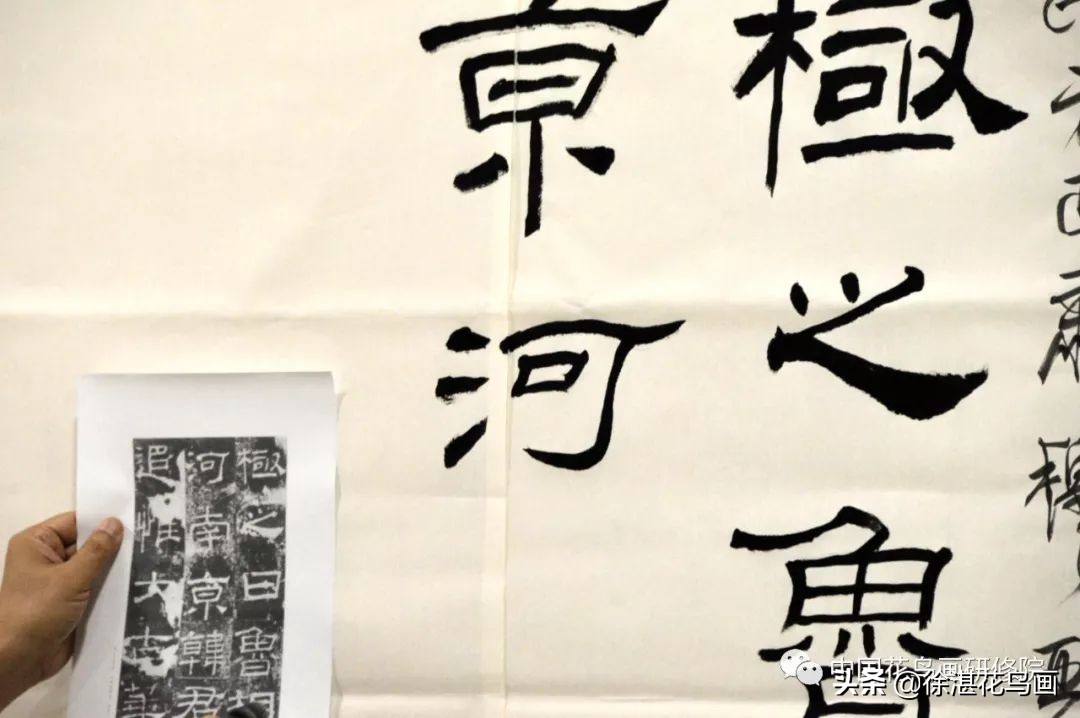 極之魯
亰河
極之日魯相
河南亰韓君
追惟大古華
中国花鸟画研修院
头条 @徐湛花鸟画